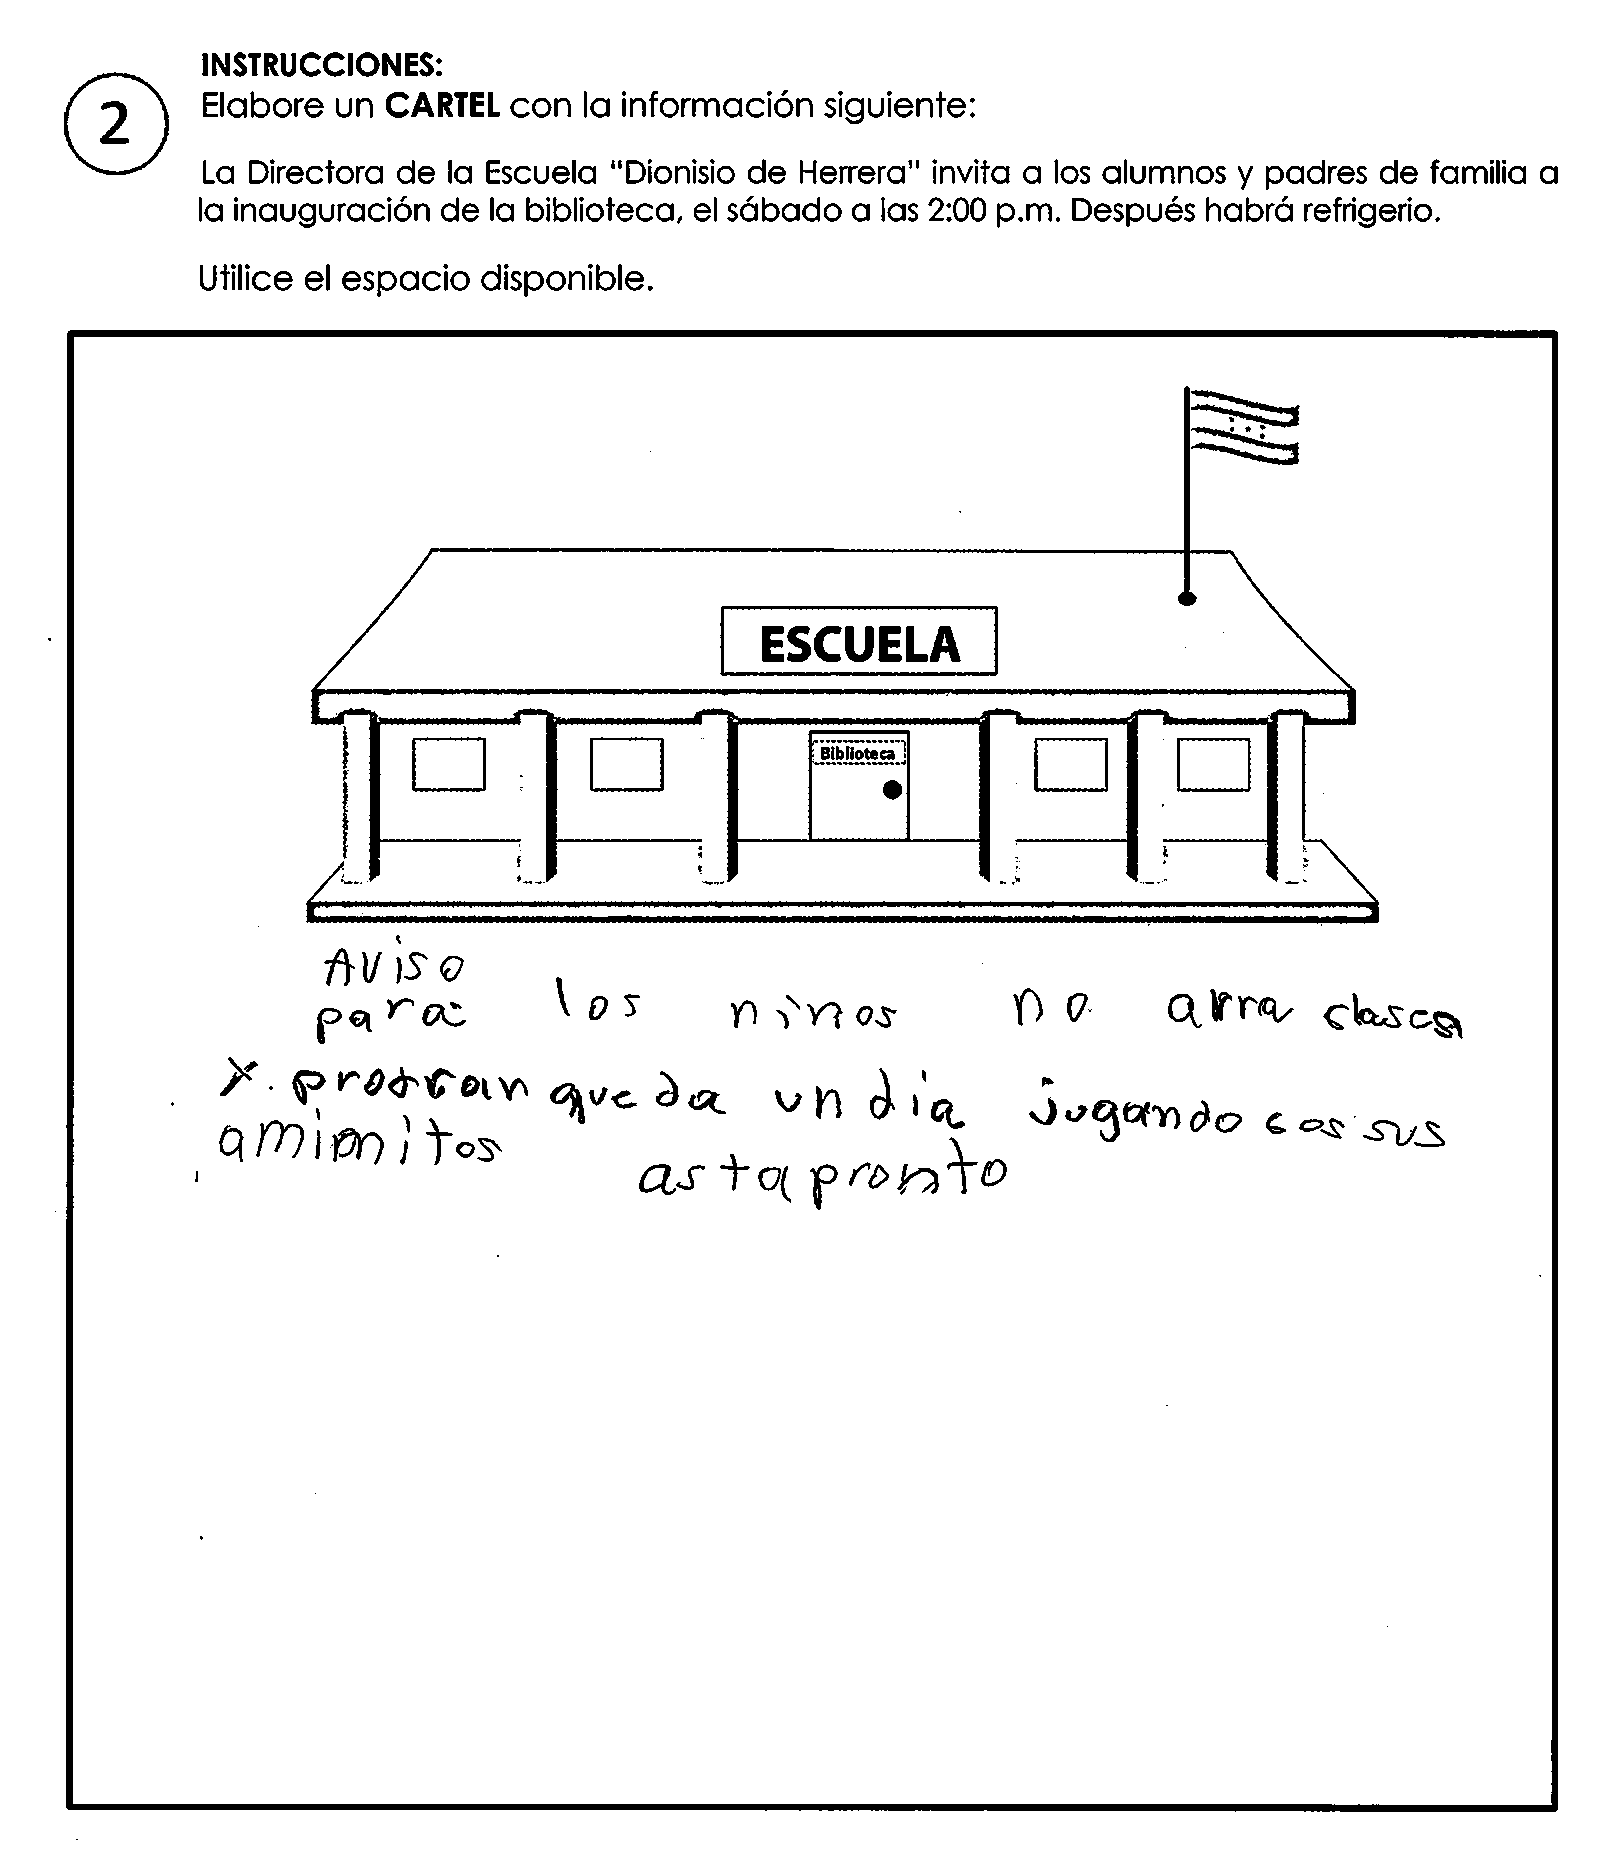 INSTRUCCIONES:
2
Elabore un CARTEL con la información siguiente:
La Directora de la Escuela "Dionisio de Herrera" invita a los alumnos y padres de familia a
la inauguración de la biblioteca, el sábado a las 2:00 p.m. Después habrá refrigerio.
Utilice el espacio disponible.
ESCUELA
Biblioteca
Aviso
para los ninos no arra clases
y queda un dia jugando cos sus
astapronto